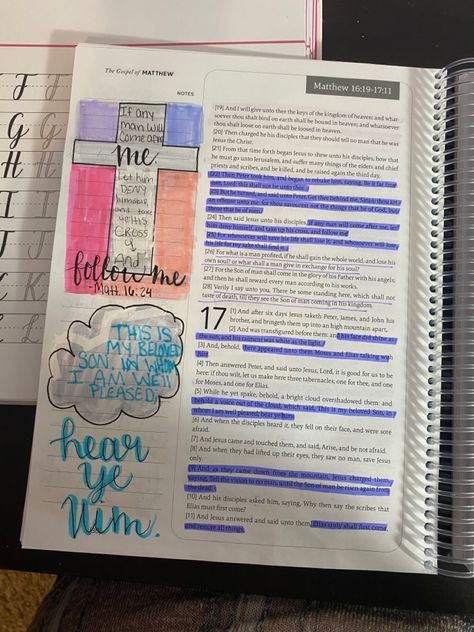 The Gospel of MATTHEW
Matthew 16:19-17:11
NOTES
If any
man will
come after
me.
Let him
DENY
himself
and take
up HIS
CROSS
And
follow me
-Matt. 16:24
THIS IS
MY BELOVED
SON, IN WHOM
I AM WELL
PLEASED,
hear
ye
Him.
[19] And I will give unto thee the keys of the kingdom of heaven: and what-
soever thou shalt bind on earth shall be bound in heaven: and whatsoever
thou shalt loose on earth shall be loosed in heaven.
[20] Then charged he his disciples that they should tell no man that he was
Jesus the Christ.
[21] From that time forth began Jesus to shew unto his disciples, how that
he must go unto Jerusalem, and suffer many things of the elders and chief
priests and scribes, and be killed, and be raised again the third day.
[22] Then Peter took him, and began to rebuke him, saying, Be it far from
thee, Lord: this shall not be unto thee.
[23] But he turned, and said unto Peter, Get thee behind me, Satan: thou art
an offence unto me: for thou savourest not the things that be of God, but
those that be of men.
[24] Then said Jesus unto his disciples, If any man will come after me, let
him deny himself, and take up his cross, and follow me.
[25] For whosoever will save his life shall lose it: and whosoever will lose
his life for my sake shall find it.
[26] For what is a man profited, if he shall gain the whole world, and lose his
own soul? or what shall a man give in exchange for his soul?
[27] For the Son of man shall come in the glory of his Father with his angels;
and then he shall reward every man according to his works.
[28] Verily I say unto you, There be some standing here, which shall not
taste of death, till they see the Son of man coming in his kingdom.
17 [1] And after six days Jesus taketh Peter, James, and John his
brother, and bringeth them up into an high mountain apart,
[2] And was transfigured before them: and his face did shine as
the sun, and his raiment was white as the light.
[3] And, behold, there appeared unto them Moses and Elias talking with
him.
[4] Then answered Peter, and said unto Jesus, Lord, it is good for us to be
here: if thou wilt, let us make here three tabernacles; one for thee, and one
for Moses, and one for Elias.
[5] While he yet spake, behold, a bright cloud overshadowed them: and
behold a voice out of the cloud, which said, This is my beloved Son, in
whom I am well pleased; hear ye him.
[6] And when the disciples heard it, they fell on their face, and were sore
afraid.
[7] And Jesus came and touched them, and said, Arise, and be not afraid.
[8] And when they had lifted up their eyes, they saw no man, save Jesus
only.
[9] And as they came down from the mountain, Jesus charged them,
saying, Tell the vision to no man, until the Son of man be risen again from
the dead.
[10] And his disciples asked him, saying, Why then say the scribes that
Elias must first come?
[11] And Jesus answered and said unto them, Elias truly shall first come,
and restore all things.